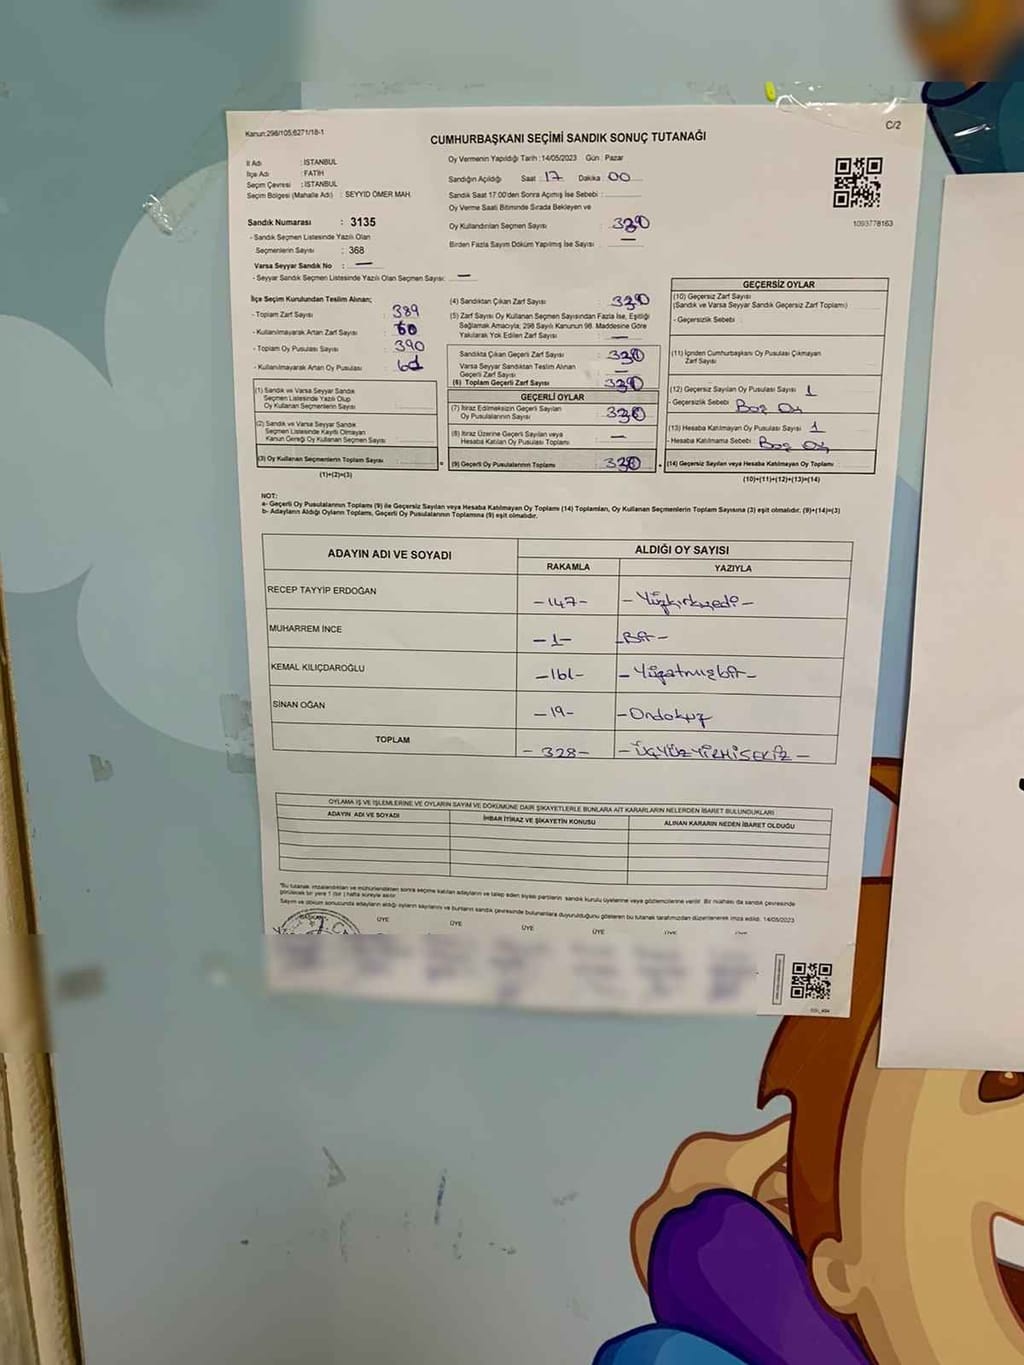 Kanun:298/105;6271/18-1
C/2
CUMHURBAŞKANI SEÇİMİ SANDIK SONUÇ TUTANAĞI
İl Adı : İSTANBUL
İlçe Adı : FATİH
Seçim Çevresi : İSTANBUL
Seçim Bölgesi (Mahalle Adı) : SEYYİD ÖMER MAH.
Sandık Numarası : 3135
- Sandık Seçmen Listesinde Yazılı Olan
Seçmenlerin Sayısı : 368
Varsa Seyyar Sandık No : —
- Seyyar Sandık Seçmen Listesinde Yazılı Olan Seçmen Sayısı: —
Oy Vermenin Yapıldığı Tarih :14/05/2023 Gün : Pazar
Sandığın Açıldığı Saat : 17 Dakika 00
Sandık Saat 17.00'den Sonra Açılmış İse Sebebi :
Oy Verme Saati Bitiminde Sırada Bekleyen ve
Oy Kullandırılan Seçmen Sayısı :
Birden Fazla Sayım Döküm Yapılmış İse Sayısı : —
1093778163
İlçe Seçim Kurulundan Teslim Alınan;
- Toplam Zarf Sayısı : 389
- Kullanılmayarak Artan Zarf Sayısı : 60
- Toplam Oy Pusulası Sayısı : 390
- Kullanılmayarak Artan Oy Pusulası :
(1) Sandık ve Varsa Seyyar Sandık
Seçmen Listesinde Yazılı Olup
Oy Kullanan Seçmenlerin Sayısı :
(2) Sandık ve Varsa Seyyar Sandık
Seçmen Listesinde Kaydı Olmayan
Kanun Gereği Oy Kullanan Seçmen Sayısı :
(3) Oy Kullanan Seçmenlerin Toplam Sayısı :
(1)+(2)=(3)
(4) Sandıktan Çıkan Zarf Sayısı :
(5) Zarf Sayısı Oy Kullanan Seçmen Sayısından Fazla İse, Eşitliği
Sağlamak Amacıyla; 298 Sayılı Kanunun 98. Maddesine Göre
Yakılarak Yok Edilen Zarf Sayısı : —
Sandıkta Çıkan Geçerli Zarf Sayısı :
Varsa Seyyar Sandıktan Teslim Alınan
Geçerli Zarf Sayısı : —
(6) Toplam Geçerli Zarf Sayısı :
GEÇERLİ OYLAR
(7) İtiraz Edilmeksizin Geçerli Sayılan
Oy Pusulalarının Sayısı :
(8) İtiraz Üzerine Geçerli Sayılan veya
Hesaba Katılan Oy Pusulası Toplamı : —
(9) Geçerli Oy Pusulalarının Toplamı :
GEÇERSİZ OYLAR
(10) Geçersiz Zarf Sayısı :
(Sandık ve Varsa Seyyar Sandık Geçersiz Zarf Toplamı)
- Geçersizlik Sebebi :
(11) İçinden Cumhurbaşkanı Oy Pusulası Çıkmayan
Zarf Sayısı :
(12) Geçersiz Sayılan Oy Pusulası Sayısı : 1
- Geçersizlik Sebebi : Boş Oy
(13) Hesaba Katılmayan Oy Pusulası Sayısı : 1
- Hesaba Katılmama Sebebi : Boş Oy
(14) Geçersiz Sayılan veya Hesaba Katılmayan Oy Toplamı :
(10)+(11)+(12)+(13)=(14)
NOT:
a- Geçerli Oy Pusulalarının Toplamı (9) ile Geçersiz Sayılan veya Hesaba Katılmayan Oy Toplamı (14) Toplamları, Oy Kullanan Seçmenlerin Toplam Sayısına (3) eşit olmalıdır. (9)+(14)=(3)
b- Adayların Aldığı Oyların Toplamı, Geçerli Oy Pusulalarının Toplamına (9) eşit olmalıdır.
ADAYIN ADI VE SOYADI ALDIĞI OY SAYISI
RAKAMLA YAZIYLA
RECEP TAYYİP ERDOĞAN -147- -Yüzkırkyedi-
MUHARREM İNCE -1- -Bir-
KEMAL KILIÇDAROĞLU -161- -Yüzatmışbir-
SİNAN OĞAN -19- -Ondokuz
TOPLAM -328- -ÜÇYÜZYİRMİSEKİZ-
OYLAMA İŞ VE İŞLEMLERİNE VE OYLARIN SAYIM VE DÖKÜMÜNE DAİR ŞİKAYETLERLE BUNLARA AİT KARARLARIN NELERDEN İBARET BULUNDUKLARI
ADAYIN ADI VE SOYADI İHBAR İTİRAZ VE ŞİKAYETİN KONUSU ALINAN KARARIN NEDEN İBARET OLDUĞU
"Bu tutanak imzalandıktan ve mühürlendikten sonra seçime katılan adayların ve talep eden siyasi partilerin sandık kurulu üyelerine veya gözlemcilerine verilir. Bir nüshası da sandık çevresinde
görülecek bir yere 1 (bir) hafta süreyle asılır.
Sayım ve döküm sonucunda adayların aldığı oyların sayılarını ve bunların sandık çevresinde bulunanlara duyurulduğunu gösteren bu tutanak tarafımızdan düzenlenerek imza edildi. 14/05/2023
BAŞKAN ÜYE ÜYE ÜYE ÜYE ÜYE ÜYE